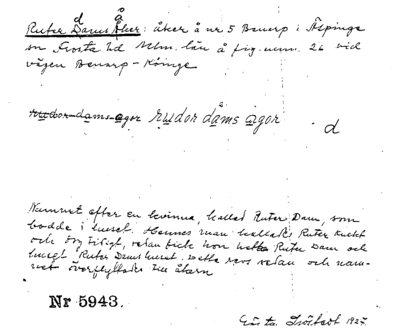 d å
Ruter Dams Åker: åker å nr 5 Benarp i Äspinge
sn Frosta hd Mlm. län å fig. num. 26 vid
vägen Benarp - Köinge
rudor dams agor rudor dåms agor d
Namnet efter en kvinna, kallad Ruter Dam, som
bodde i huset. Hennes man kallades Ruter Knekt
och dog tidigt, sedan fick hon heta Ruter Dam och
huset Ruter Dams huset. Detta revs sedan och nam-
net överflyttades till åkern
Nr 5943.
1927